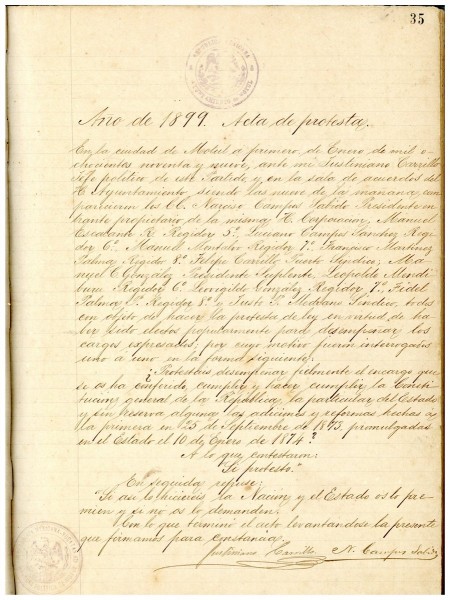 35
Año de 1899. Acta de protesta.
En la ciudad de Motul a primero de Enero de mil o-
chocientos noventa y nueve, ante mi Justiniano Carrillo
Jefe político de este Partido, y en la sala de acuerdos del
H. Ayuntamiento, siendo las nueve de la mañana, com-
parecieron los CC. Nazario Campos Sabido Presidente en-
trante propietario de la misma H. Corporación, Manuel
Escalante R. Regidor 5º, Luciano Campos Sanchez Regi-
dor 6º Manuel Montalvo Regidor 7º Francisco Martinez
Palma Regidor 8º Felipe Carrillo Puerto Síndico; Ma-
nuel C. González Presidente Suplente Leopoldo Mendi-
buru Regidor 6º Leovigildo González Regidor 7º Fidel
Palma P. Regidor 8º y Justo P. Medrano Síndico, todos
con objeto de hacer la protesta de ley en virtud de ha-
ber sido electos popularmente para desempeñar los
cargos expresados; por cuyo motivo fueron interrogados
uno a uno en la forma siguiente:
¿Protestais desempeñar fielmente el encargo que
se os ha conferido, cumplir y hacer cumplir la Consti-
tucion general de la República, la particular del Estado
y sin reserva alguna las adiciones y reformas hechas á
la primera en 25 de Septiembre de 1873, promulgadas
en el Estado el 10 de Enero de 1874?
A lo que contestaron:
"Sí protesto."
En seguida repuso:
"Si así lo hiciereis la Nación y el Estado os lo pre-
mien y si no os lo demanden."
Con lo que terminó el acto levantandose la presente
que firmamos para constancia.
Justiniano Carrillo N. Campos Sabido